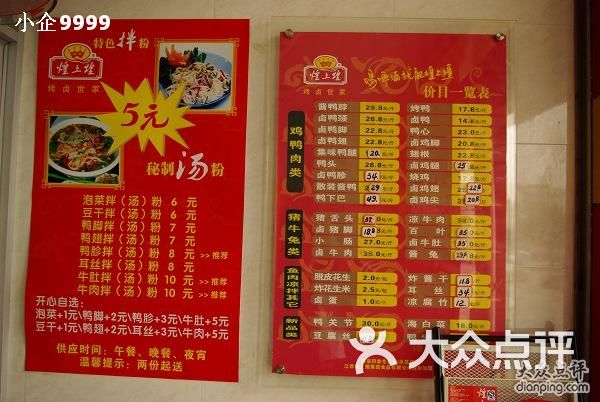 小企9999
特色拌粉
煌上煌
烤卤世家
5元
秘制汤粉
泡菜拌(汤)粉 6 元
豆干拌(汤)粉 6 元
鸭脚拌(汤)粉 7 元
鸭翅拌(汤)粉 7 元
鸭胗拌(汤)粉 8 元 >>推荐
耳丝拌(汤)粉 8 元
牛肚拌(汤)粉 10 元 >>推荐
牛肉拌(汤)粉 10 元 >>推荐
开心自选:
泡菜+1元\鸭脚+2元\鸭胗+3元\牛肚+5元
豆干+1元\鸭翅+2元\耳丝+3元\牛肉+5元
供应时间:午餐、晚餐、夜宵
温馨提示:两份起送
煌上煌
烤卤世家
价目一览表
鸡鸭肉类
酱鸭脖 26.8元/斤 烤鸭 17.8元/斤
卤鸭颈 26.8元/斤 卤鸭 14.8元/斤
卤鸭脚 22.8元/斤 鸭心 23.0元/斤
卤鸭翅 22.8元/斤 卤鸡脚 22.8元/斤
集味鸭腿 20 翅根 22.8元/斤
鸭头 26.8元/斤 卤鸡腿 25
卤鸭胗 34 烧鸡 17.8元/斤
散装酱鸭 29 卤鸡翅 22.8
鸭下巴 49 卤鸡尖 20.8
猪牛兔类
猪舌头 37 凉牛肉 34.0元/斤
卤猪脚 18.8 百叶 35
小肠 27.0元/斤 卤牛肚 35.0元/斤
卤牛肉 35.0元/斤 酱兔
鱼肉凉拌其它
脱皮花生 2.0元/包 炸酱干 11.8
炸花生米 2.5元/包 耳丝 34
卤蛋 1.0元/个 凉腐竹 12
新品类
鸭关节 30.0元/斤 海白菜 16.0元/斤
豆腐丝
大众点评
大众点评
dianping.com
煌